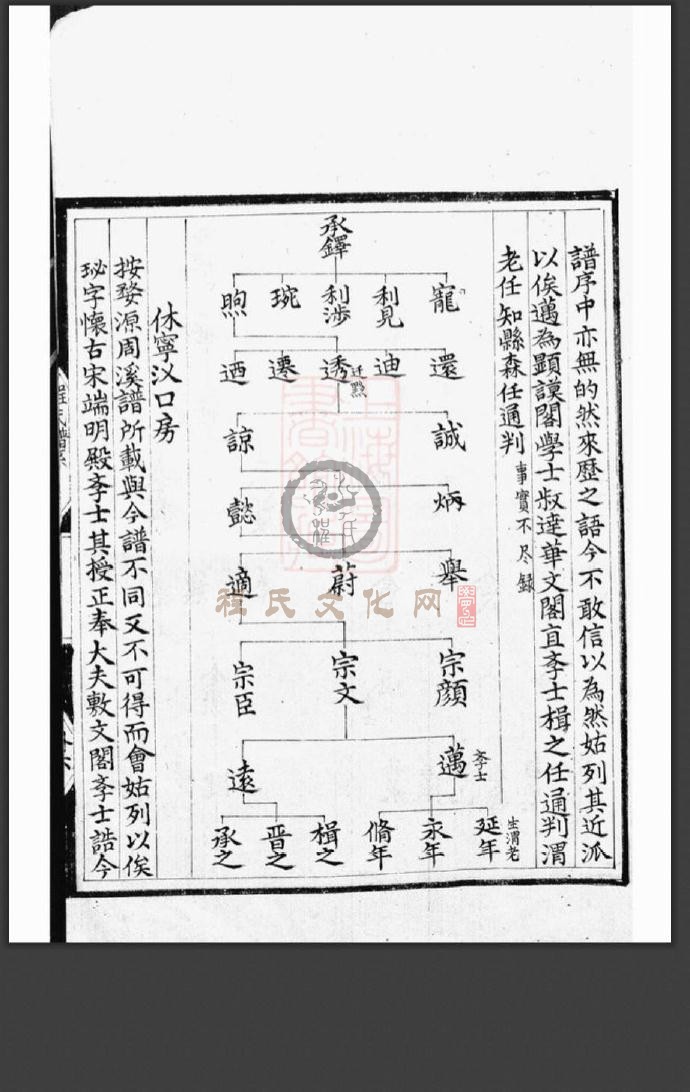 譜序中亦無的然來歷之語今不敢信以為然姑列其近派
以俟邁為顕謨閣學士叔逹華文閣直斈士楫之任通判渭
老任知縣森任通判事實不尽録
承鐸
寵 利見 利渉 琬 煦
還 迪 透迁黟 遷 迺
誠 諒
炳 懿
舉 蔚 適
宗顔 宗文 宗臣
邁斈士 逺
延年生渭老 永年 脩年 楫之 晋之 承之
休寧汊口房
按婺源周溪譜所載與今譜不同又不可得而會姑列以俟
珌字懷古宋端明殿斈士其授正奉大夫敷文閣斈士誥今
程氏文化网